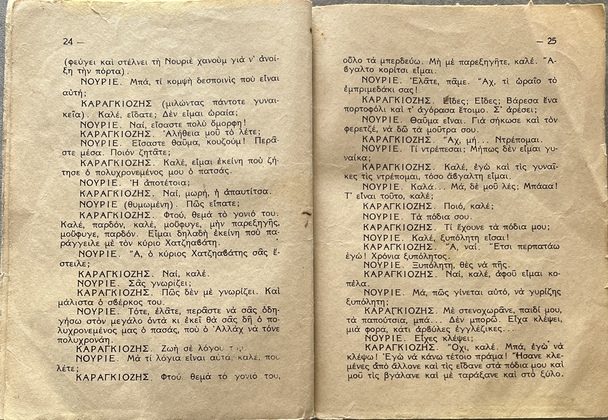 24 —
(φεύγει καὶ στέλνει τὴ Νουριὲ χανοὺμ γιὰ ν' ἀνοί-
ξη τὴν πόρτα).
ΝΟΥΡΙΕ. Μπά, τί κομψὴ δεσποινὶς ποὺ εἶναι
αὐτή;
ΚΑΡΑΓΚΙΟΖΗΣ (μιλώντας πάντοτε γυναι-
κεῖα). Καλέ, εἴδατε; Δὲν εἶμαι ὡραία;
ΝΟΥΡΙΕ. Ναί, εἴσαστε πολὺ ὄμορφη!
ΚΑΡΑΓΚΙΟΖΗΣ. Ἀλήθεια μοῦ τὸ λέτε;
ΝΟΥΡΙΕ. Εἴσαστε θαῦμα, κουζούμ! Περᾶ-
στε μέσα. Ποιὸν ζητᾶτε;
ΚΑΡΑΓΚΙΟΖΗΣ. Καλέ, εἶμαι ἐκείνη ποὺ ζή-
τησε ὁ πολυχρονεμένος μου ὁ πατσάς.
ΝΟΥΡΙΕ. Ἡ ἀποτέτοια;
ΚΑΡΑΓΚΙΟΖΗΣ. Ναί, μωρή, ἡ ἀπαυτίτσα.
ΝΟΥΡΙΕ (θυμωμένη). Πῶς εἴπατε;
ΚΑΡΑΓΚΙΟΖΗΣ. Φτού, θεμὰ τὸ γονιό του!
Καλέ, παρδόν, καλέ, μοὔφυγε, μὴν παρεξηγῆς,
μοὔφυγε, παρδόν. Εἶμαι δηλαδὴ ἐκείνη ποὺ πα-
ράγγειλε μὲ τὸν κύριο Χατζηαβάτη.
ΝΟΥΡΙΕ. Ἄ, ὁ κύριος Χατζηαβάτης σᾶς ἔ-
στειλε;
ΚΑΡΑΓΚΙΟΖΗΣ. Ναί, καλέ.
ΝΟΥΡΙΕ. Σᾶς γνωρίζει;
ΚΑΡΑΓΚΙΟΖΗΣ. Πῶς δὲν μὲ γνωρίζει. Καὶ
μάλιστα ὁ σβέρκος του.
ΝΟΥΡΙΕ. Τότε, ἐλᾶτε, περᾶστε νὰ σᾶς ὁδη-
γήσω στὸν μεγάλο ὀντὰ κι ἐκεῖ θὰ σᾶς δῆ ὁ πο-
λυχρονεμένος μας ὁ πασάς, ποὺ ὁ Ἀλλὰχ νὰ τὸνε
πολυχρονάη.
ΚΑΡΑΓΚΙΟΖΗΣ. Ζωὴ σὲ λόγου
ΝΟΥΡΙΕ. Μὰ τί λόγια εἶναι αὐτά, καλέ, ποὺ
λέτε;
ΚΑΡΑΓΚΙΟΖΗΣ. Φτού, θεμὰ τὸ γονιό του,
— 25
ὅλο τὰ μπερδεύω. Μὴ μὲ παρεξηγῆτε, καλέ. Ἄ-
βγαλτο κορίτσι εἶμαι.
ΝΟΥΡΙΕ. Ἐλᾶτε, πᾶμε. Ἄχ, τί ὡραῖο τὸ
ἐμπριμεδάκι σας!
ΚΑΡΑΓΚΙΟΖΗΣ. Εἶδες; Εἶδες; Βάρεσα ἕνα
πορτοφόλι καὶ τ' ἀγόρασα ἕτοιμο. Σ' ἀρέσει;
ΝΟΥΡΙΕ. Θαῦμα εἶναι. Γιὰ σήκωσε καὶ τὸν
φερετζέ, νὰ δῶ τὰ μοῦτρα σου.
ΚΑΡΑΓΚΙΟΖΗΣ. Ἄχ, μή... Ντρέπομαι.
ΝΟΥΡΙΕ. Τί ντρέπεσαι; Μήπως δὲν εἶμαι γυ-
ναίκα;
ΚΑΡΑΓΚΙΟΖΗΣ. Καλέ, ἐγὼ καὶ τὶς γυναῖ-
κες τὶς ντρέπομαι, τόσο ἄβγαλτη εἶμαι.
ΝΟΥΡΙΕ. Καλά... Μά, δέ μοῦ λές; Μπάαα!
Τ' εἶναι τοῦτο, καλέ;
ΚΑΡΑΓΚΙΟΖΗΣ. Ποιό, καλέ;
ΝΟΥΡΙΕ. Τὰ πόδια σου.
ΚΑΡΑΓΚΙΟΖΗΣ. Τί ἔχουνε τὰ πόδια μου;
ΝΟΥΡΙΕ. Καλέ, ξυπόλητη εἶσαι!
ΚΑΡΑΓΚΙΟΖΗΣ. Ἄ, ναί. Ἔτσι περπατάω
ἐγώ! Χρόνια ξυπόλητος.
ΝΟΥΡΙΕ. Ξυπόλητη, θὲς νὰ πῆς.
ΚΑΡΑΓΚΙΟΖΗΣ. Ναί, καλέ, ἀφοῦ εἶμαι κο-
πέλα.
ΝΟΥΡΙΕ. Μά, πῶς γίνεται αὐτό, νὰ γυρίζης
ξυπόλητη;
ΚΑΡΑΓΚΙΟΖΗΣ. Μὲ στενοχωρᾶνε, παιδί μου,
τὰ παπούτσια, μπά... Δὲν μπορῶ. Εἶχα κλέψει,
μιὰ φορά, κάτι ἀρβύλες ἐγγλέζικες...
ΝΟΥΡΙΕ. Εἶχες κλέψει;
ΚΑΡΑΓΚΙΟΖΗΣ. Ὄχι, καλέ. Μπά, ἐγὼ νὰ
κλέψω! Ἐγὼ νὰ κάνω τέτοιο πράμα! Ἤσανε κλε-
μένες ἀπὸ ἄλλονε καὶ τὶς εἴδανε στὰ πόδια μου καὶ
μοῦ τὶς βγάλανε καὶ μὲ ταράξανε καὶ στὸ ξύλο.